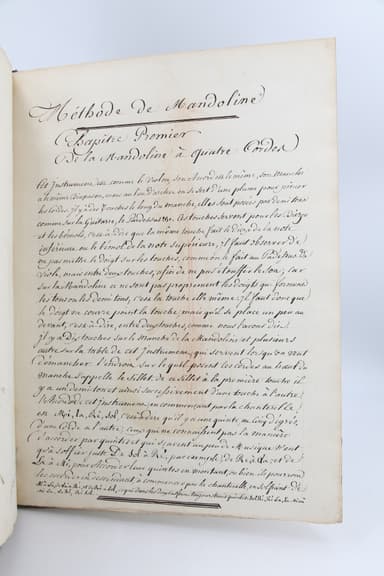 Méthode de Mandoline
Chapitre Premier
De la Mandoline à quatre Cordes
Cet Instrument est comme le Violon, son Accord est le même, son Manche
a le même Diapazon, mais au lieu d'archet on se sert d'un plume pour pincer
les Cordes. Il y a des Touches le long du manche, elles sont posées par demi tons
comme sur la Guitarre, le Pardessus &c. Ces touches servent pour les Diezes
et les bémols, c'est à dire que la même touche fait le dieze de la note
inférieure ou le bémol de la note supérieure; il faut observer de
ne pas mettre le doigt sur les touches, comme on le fait au Pardessus de
Viole, mais entre deux touches, afin de ne pas étouffer le Son; car
sur la Mandoline ce ne sont pas proprement les doigts qui forment
les tons ou les demi tons, c'est la touche elle même; il faut donc que
le doigt ne couvre point la touche, mais qu'il se place un peu au
devant, c'est à dire, entre deux touches, comme nous l'avons dit.
Il y a dix touches sur le Manche de la Mandoline et plusieurs
autre sur la table de cet Instrument, qui servent lorsqu'on veut
démancher. L'endroit sur lequel posent les cordes au haut du
manche s'appelle le Sillet. De ce Sillet à la première touche il
y a un demi ton et ainsi successivement d'une touche à l'autre.
L'Accord de cet instrument, en commençant par la chanterelle
en Mi, La, Ré, Sol, c'est à dire qu'il y a une quinte ou cinq degrés,
d'une Corde à l'autre; Ceux qui ne connaissent pas la manière
d'accorder par quintes et qui sçavent un peu de Musique, n'ont
qu'à solfier juste De Sol à Ré, par exemple; de Ré à La, et de
La à Mi, pour accorder leur quintes en montant ou bien ils pourront
les accorder en descendant à commencer par la chanterelle, en solfiant de